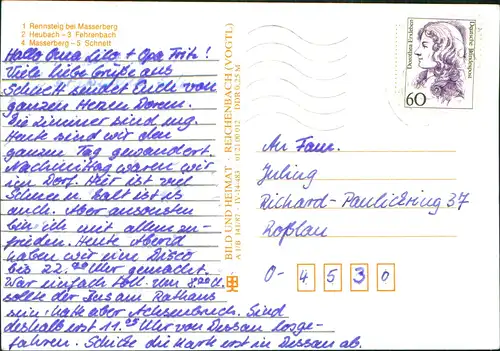 1 Rennsteig bei Masserberg
2 Heubach – 3 Fehrenbach
4 Masserberg – 5 Schnett
Hallo Oma Lilo + Opa Fritz!
Viele liebe Grüße aus
Schnett sendet Euch von
ganzem Herzen Doreen.
Die Zimmer sind ug.
Heute sind wir den
ganzen Tag gewandert.
Nachmittag waren wir
im Dorf. Hier ist viel
Schnee u. kalt ist es
auch. Aber ansonsten
bin ich mit allem zu-
frieden. Heute Abend
haben wir eine Disco
bis 22.00 Uhr gemacht.
War einfach toll. Um 8.00 U.
sollte der Bus am Rathaus
sein hatte aber Achsenbruch. Sind
deshalb erst 11.05 Uhr von Dessau losge-
fahren. Schicke die Karte erst in Dessau ab.
BILD UND HEIMAT · REICHENBACH (VOGTL)
A 1/B 141/87 IV-14-483 01 21 09 012 DDR 0,25 M
Dorothea Erxleben
Deutsche Bundespost
60
An Fam.
Juling
Richard-Paulick-Ring 37
Roßlau
O-4530